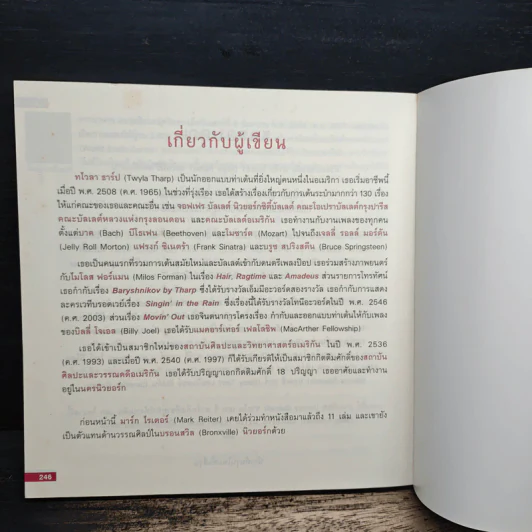 เกี่ยวกับผู้เขียน
ทไวลา ธาร์ป (Twyla Tharp) เป็นนักออกแบบท่าเต้นที่ยิ่งใหญ่คนหนึ่งในอเมริกา เธอเริ่มอาชีพนี้
เมื่อปี พ.ศ. 2508 (ค.ศ. 1965) ในช่วงที่รุ่งเรือง เธอได้สร้างเรื่องเกี่ยวกับการเต้นระบำมากกว่า 130 เรื่อง
ให้แก่คณะของเธอและคณะอื่น เช่น จอฟเฟร บัลเลต์ นิวยอร์กซิตี้บัลเลต์ คณะโอเปราบัลเลต์กรุงปารีส
คณะบัลเลต์หลวงแห่งกรุงลอนดอน และคณะบัลเลต์อเมริกัน เธอทำงานกับงานเพลงของทุกคน
ตั้งแต่บาค (Bach) บีโธเฟน (Beethoven) และโมซาร์ต (Mozart) ไปจนถึงเจลลี่ รอลล์ มอร์ตัน
(Jelly Roll Morton) แฟรงก์ ซิเนตร้า (Frank Sinatra) และบรูซ สปริงสตีน (Bruce Springsteen)
เธอเป็นคนแรกที่รวมการเต้นสมัยใหม่และบัลเลต์เข้ากับดนตรีเพลงป๊อป เธอร่วมสร้างภาพยนตร์
กับไมโลส ฟอร์แมน (Milos Forman) ในเรื่อง Hair, Ragtime และ Amadeus ส่วนรายการโทรทัศน์
เธอกำกับเรื่อง Baryshnikov by Tharp ซึ่งได้รับรางวัลเอ็มมีอะวอร์ดสองรางวัล เธอกำกับการแสดง
ละครเวทีบรอดเวย์เรื่อง Singin' in the Rain ซึ่งเรื่องนี้ได้รับรางวัลโทนีอะวอร์ดในปี พ.ศ. 2546
(ค.ศ. 2003) ส่วนเรื่อง Movin' Out เธอจินตนาการโครงเรื่อง กำกับและออกแบบท่าเต้นให้กับเพลง
ของบิลลี่ โจเอล (Billy Joel) เธอได้รับแมคอาร์เทอร์ เฟลโลชิพ (MacArther Fellowship)
เธอได้เข้าเป็นสมาชิกใหม่ของสถาบันศิลปะและวิทยาศาสตร์อเมริกัน ในปี พ.ศ. 2536
(ค.ศ. 1993) และเมื่อปี พ.ศ. 2540 (ค.ศ. 1997) ก็ได้รับเกียรติให้เป็นสมาชิกกิตติมศักดิ์ของสถาบัน
ศิลปะและวรรณคดีอเมริกัน เธอได้รับปริญญาเอกกิตติมศักดิ์ 18 ปริญญา เธออาศัยและทำงาน
อยู่ในนครนิวยอร์ก
ก่อนหน้านี้ มาร์ก ไรเตอร์ (Mark Reiter) เคยได้ร่วมทำหนังสือมาแล้วถึง 11 เล่ม และเขายัง
เป็นตัวแทนด้านวรรณศิลป์ในบรอนสวิล (Bronxville) นิวยอร์กด้วย
246